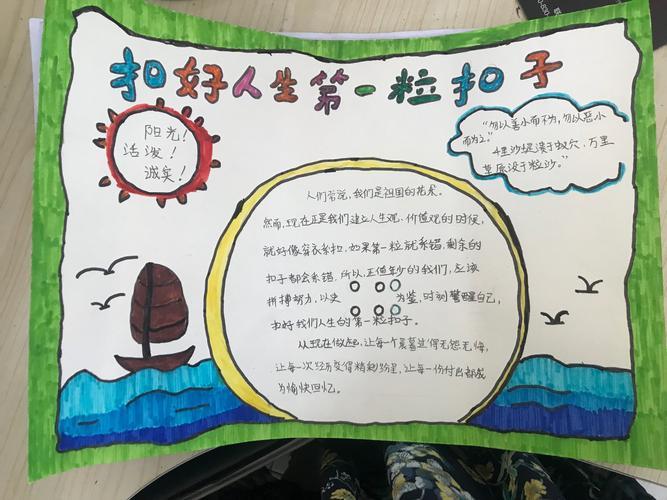 扣好人生第一粒扣子
阳光！
活泼！
诚实！
"勿以善小而不为，勿以恶小
而为之。"
千里沙堤溃于蚁穴，万里
草原没于粒沙。"
人们常说，我们是祖国的花朵。
然而，现在正是我们建立人生观、价值观的时候，
就好像穿衣系扣，如果第一粒就系错，剩余的
扣子都会系错，所以，正值年少的我们，应该
拼搏努力，以史 为鉴，时刻警醒自己，
扣好我们人生的第一粒扣子。
从现在做起，让每个晨暮过得无怨无悔，
让每一次经历变得精彩纷呈，让每一份付出都成
为愉快回忆。